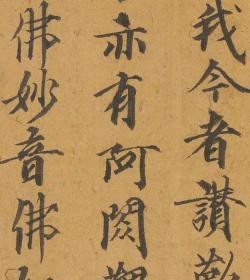 我今者讚歎
亦有阿閦鞞
佛妙音佛